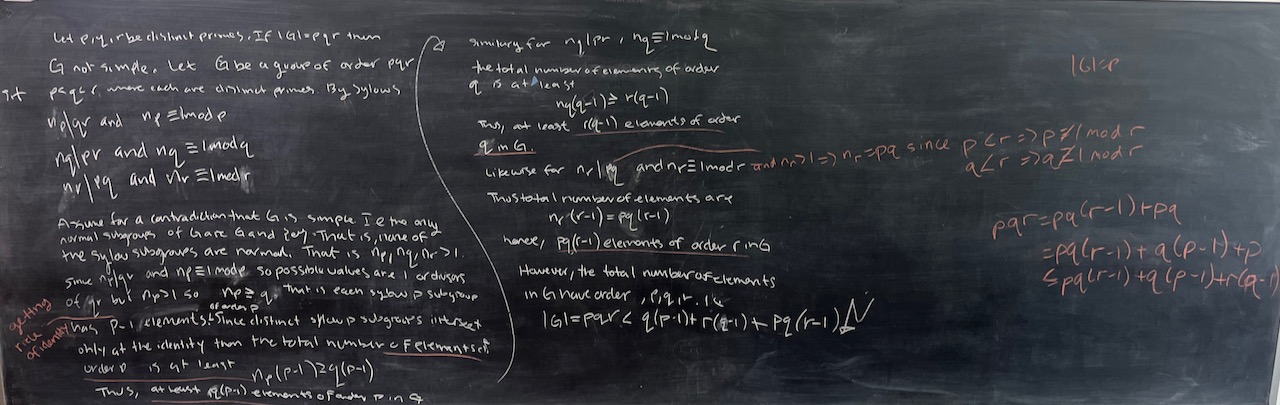 Let p,q,r be distinct primes. If |G|=pqr then
G not simple. Let G be a group of order pqr
p<q<r, where each are distinct primes. By Sylows
n_p|qr and n_p ≡1mod p
n_q|pr and n_q ≡1mod q
n_r|pq and n_r ≡1mod r
Assume for a contradiction that G is simple. I.e the only
normal subgroups of G are G and {e}. That is, none of
the sylow subgroups are normal. That is n_p, n_q, n_r >1.
Since n_p|qr and n_p ≡1mod p so possible values are 1 or divisors
of qr but n_p>1 so n_p ≥ q. That is each sylow p subgroup
of order p
has p-1 elements. Since distinct sylow p subgroups intersect
getting rid of identity
only at the identity then the total number of elements of
order p is at least n_p(p-1)≥q(p-1)
Thus, at least q(p-1) elements of order p in G
Similarly for n_q|pr, n_q≡1mod q
the total number of elements of order
q is at least
n_q(q-1)≥ r(q-1)
Thus, at least r(q-1) elements of order
q in G.
Likewise for n_r|pq and n_r≡1mod r and n_r>1 => n_r=pq since p<r => p≢1 mod r
q<r => q≢1 mod r
Thus total number of elements are
n_r(r-1)=pq(r-1)
hence, pq(r-1) elements of order r in G
However, the total number of elements
in G have order, p,q,r. i.e
|G|=pqr < q(p-1)+r(q-1)+pq(r-1)
|G|=p
pqr=pq(r-1)+pq
=pq(r-1)+q(p-1)+p
≤pq(r-1)+q(p-1)+r(q-1)